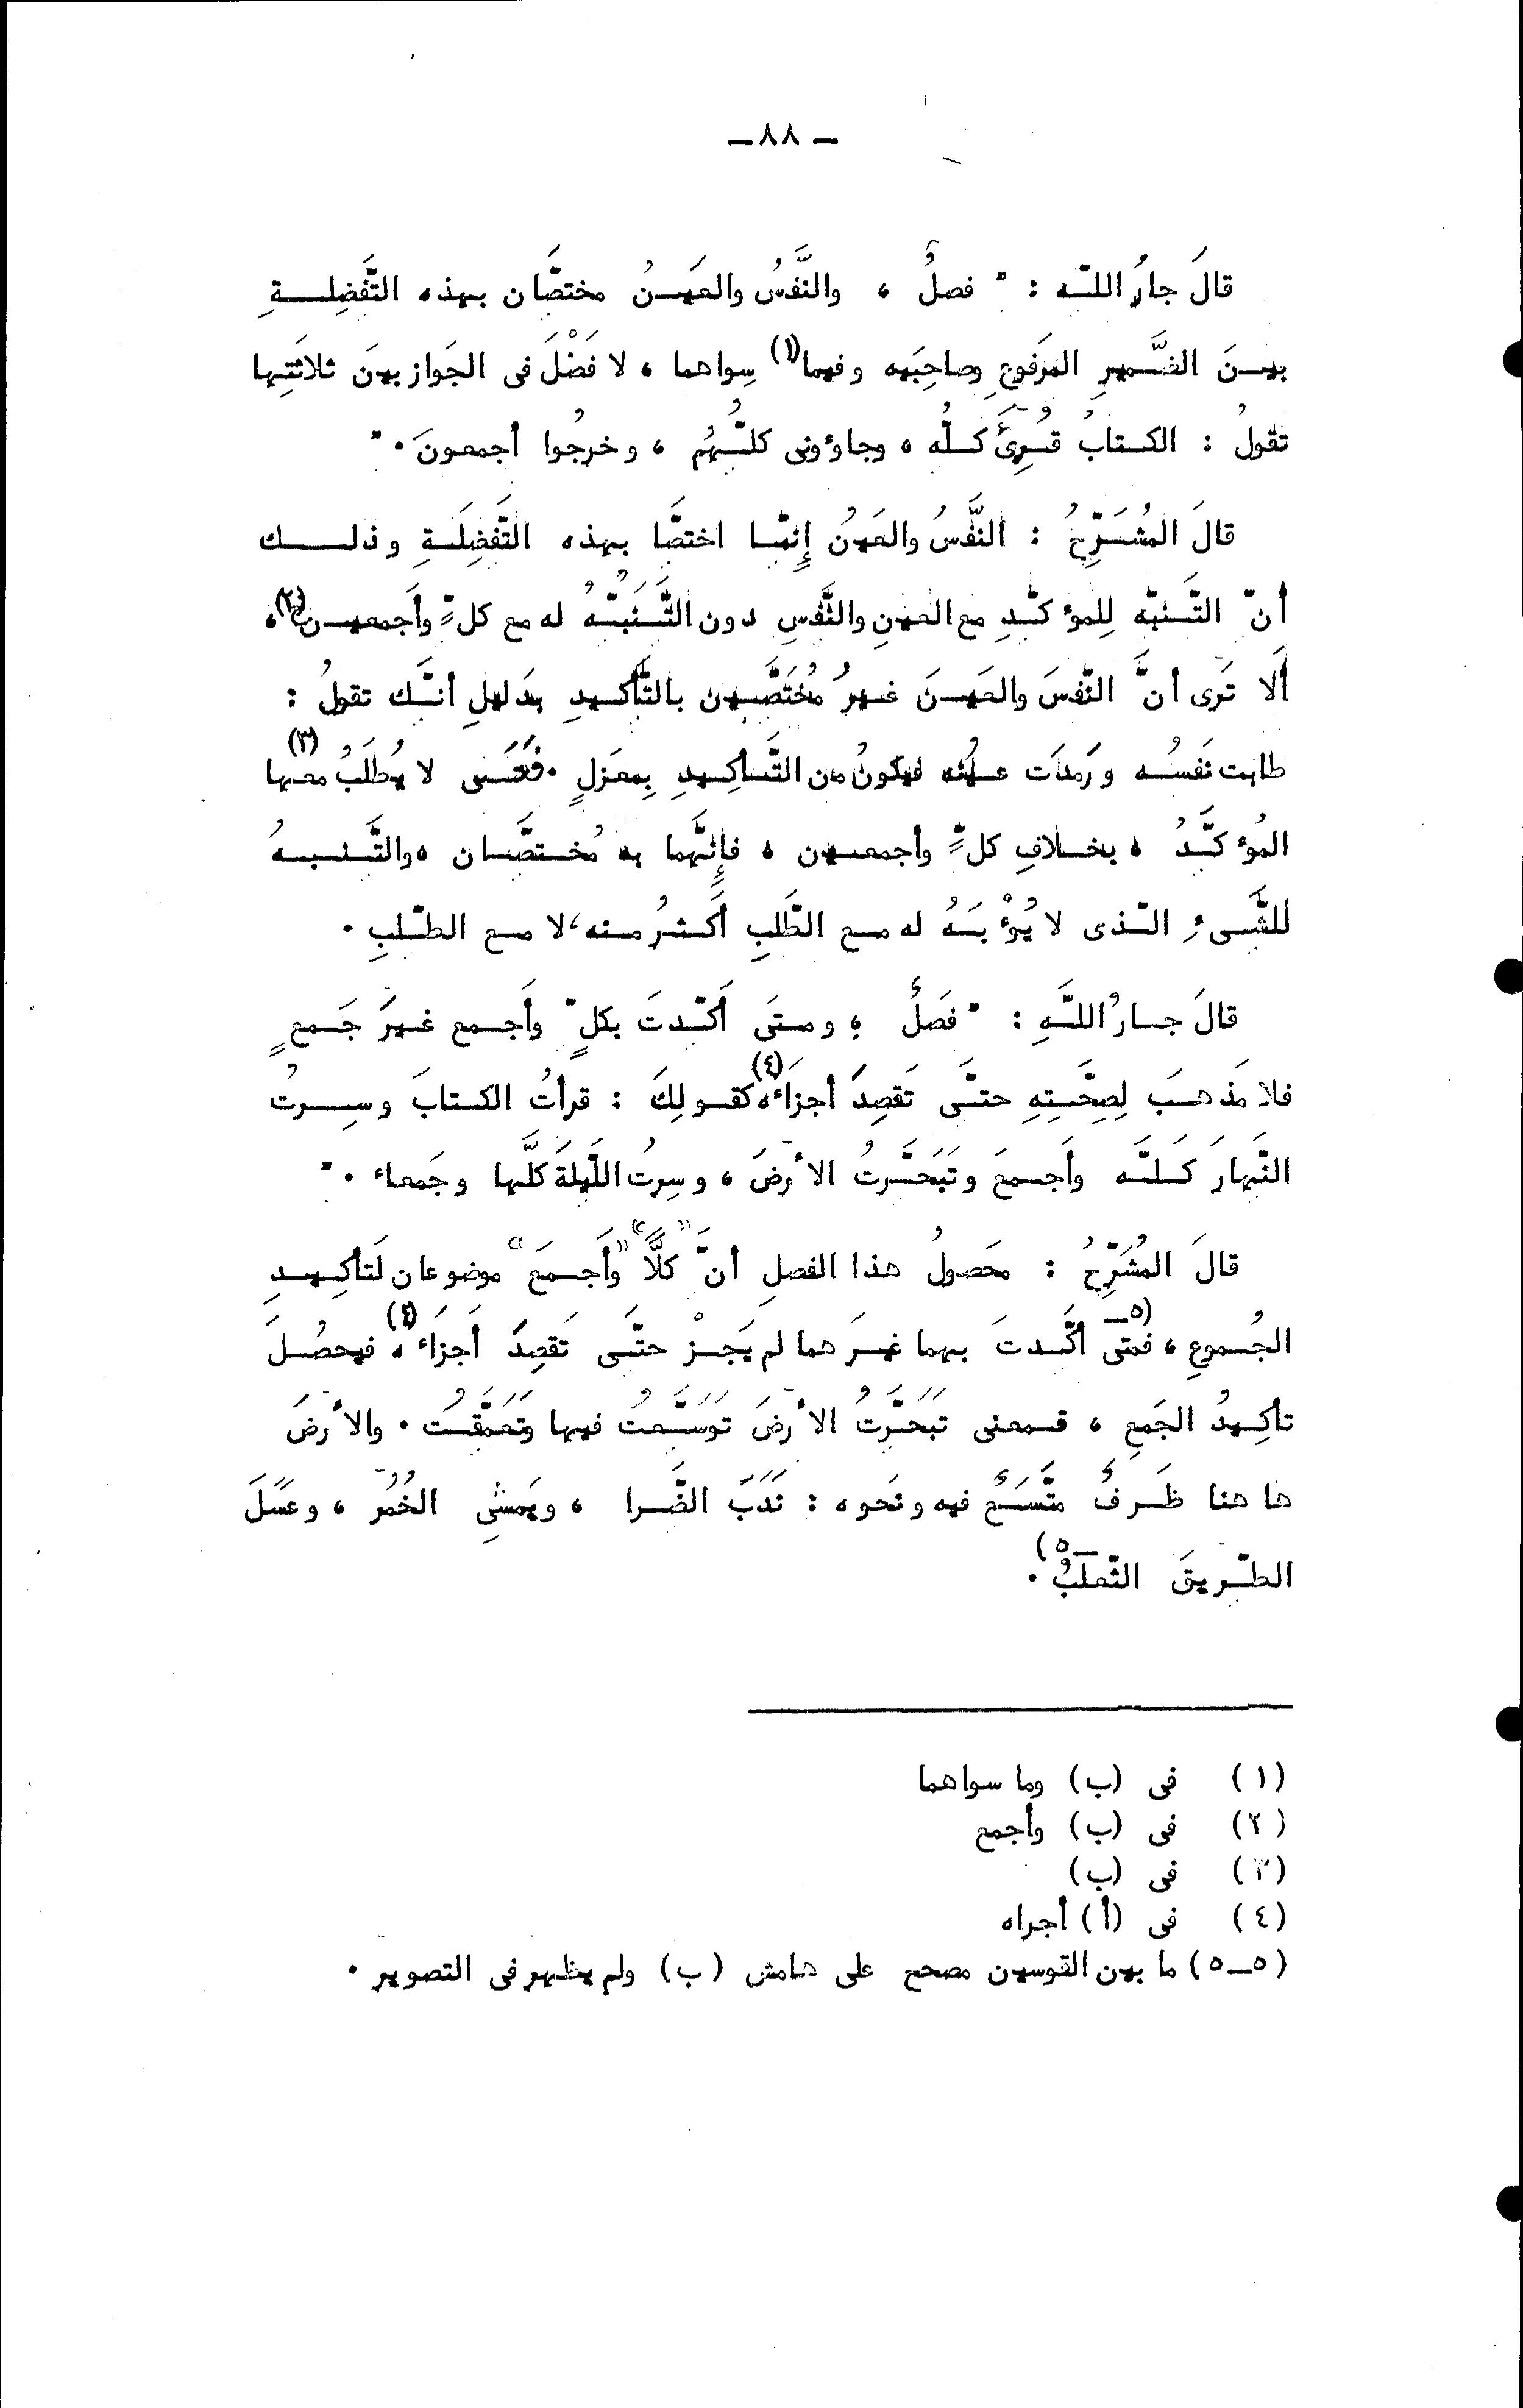 ـ ٨٨ ـ
قالَ جارُ اللّه : " فصلٌ ، والنَّفْسُ والعَينُ مختصَّان بهذه التَّفْضِلةِ
بينَ الضَّميرِ المَرفوعِ وصاحِبَيه وفيما(١) سِواهما ، لا فَضْلَ فى الجَواز بينَ ثلاثَتِها
تقولُ : الكتابُ قُرِئَ كلُّه ، وجاؤونى كلُّهُم ، وخرجُوا أجمعونَ . "
قالَ المُشَرِّحُ : النَّفْسُ والعَينُ إِنَّما اختصَّا بهذه التَّفْضِلَةِ وذلك
أنّ التَّنبّه لِلمؤكَّدِ مع العينِ والنَّفسِ دون التَّنَبُّهُ له مع كلٍّ وأَجمعين(٢) ،
أَلا تَرى أنَّ النّفسَ والعَينَ غيرُ مُختَصَّين بالتَّأكيدِ بدَليلِ أنّك تقولُ :
طابت نَفسُه ورَمدَت عينُه فيكونُ من التَّأكِيدِ بِمعَزلٍ . فَعَسَى لا يُطلَبُ معها(٣)
المُؤكَّدُ ، بخلافِ كلٍّ وأجمعين ، فإِنَّهما به مُختصَّان ، والتَّنبهُ
للشَّىءِ الّذى لا يُؤْبَهُ له مع الطَّلبِ أَكثرُ منه ، لا مع الطّلبِ .
قالَ جارُ اللَّهِ : " فَصلٌ ؛ ومتَى أَكّدتَ بكلٍّ وأَجمع غيرَ جَمعٍ
فلا مَذهبَ لِصِحَّتِهِ حتَّى تَقصِدَ أجزاءَه(٤) كقولِكَ : قرأتُ الكتابَ وسِرتُ
النَّهارَ كلَّه وأَجمعَ وتَبَحَّرتُ الأرضَ ، وسِرتُ اللَّيلةَ كلَّها وجَمعاء . "
قالَ المُشَرِّحُ : مَحصولُ هذا الفصلِ أنّ "كلَّاً" "وأَجمَعَ" موضوعان لَتأكِيدِ
الجُموعِ ، (٥ـ فمَتى أكَّدتَ بهما غيرَهما لم يَجزْ حتَّى تَقصِدَ أَجزاءَه(٤) ، فيحصُلَ
تأكِيدُ الجَمعِ ، فمعنى تَبَحَّرتُ الأرضَ تَوسَّعتُ فيها وتَعمَّقتُ . والأرضَ
ها هنا ظَرفٌ متَّسَعٌ فيه ونَحوه : نَدَبّ الضَّرا ، ويَمشىِ الخُمُر ، وعَسَلَ
الطّريقَ الثَّعلبُ ـ٥) .
(١) فى (ب) وما سواهما
(٢) فى (ب) وأجمع
(٣) فى (ب)
(٤) فى (أ) أجراه
(٥ـ٥) ما بين القوسين مصحح على هامش (ب) ولم يظهر فى التصوير .